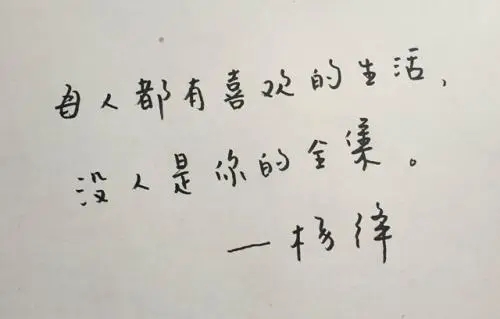 每人都有喜欢的生活,
没人是你的全集。
—杨绛